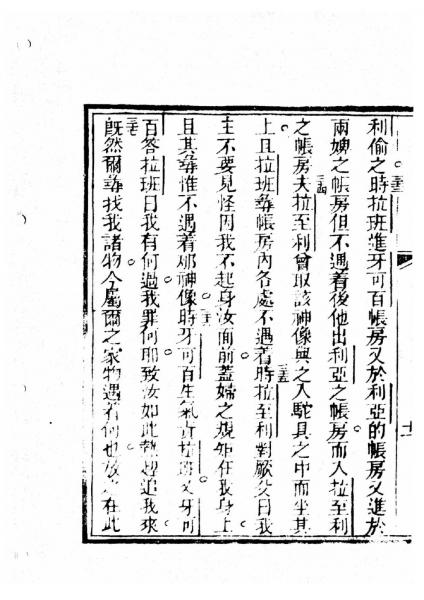 利偷之時三三拉班進牙可百帳房又於利亞的帳房又進於
兩婢之帳房但不遇着後他出利亞之帳房而入拉至利
之帳房三四夫拉至利曾取該神像與之入駝具之中而坐其
上且拉班尋帳房內各處不遇着三五時拉至利對厥父曰我
主不要見怪因我不起身汝面前蓋婦之規矩在我身上
且其尋惟不遇着那神像三六時牙可百生氣責拉班又牙可
百答拉班曰我有何過我罪何耶致汝如此熱趕追我來
三七既然爾尋找我諸物今屬爾之家物遇有何也放之在此